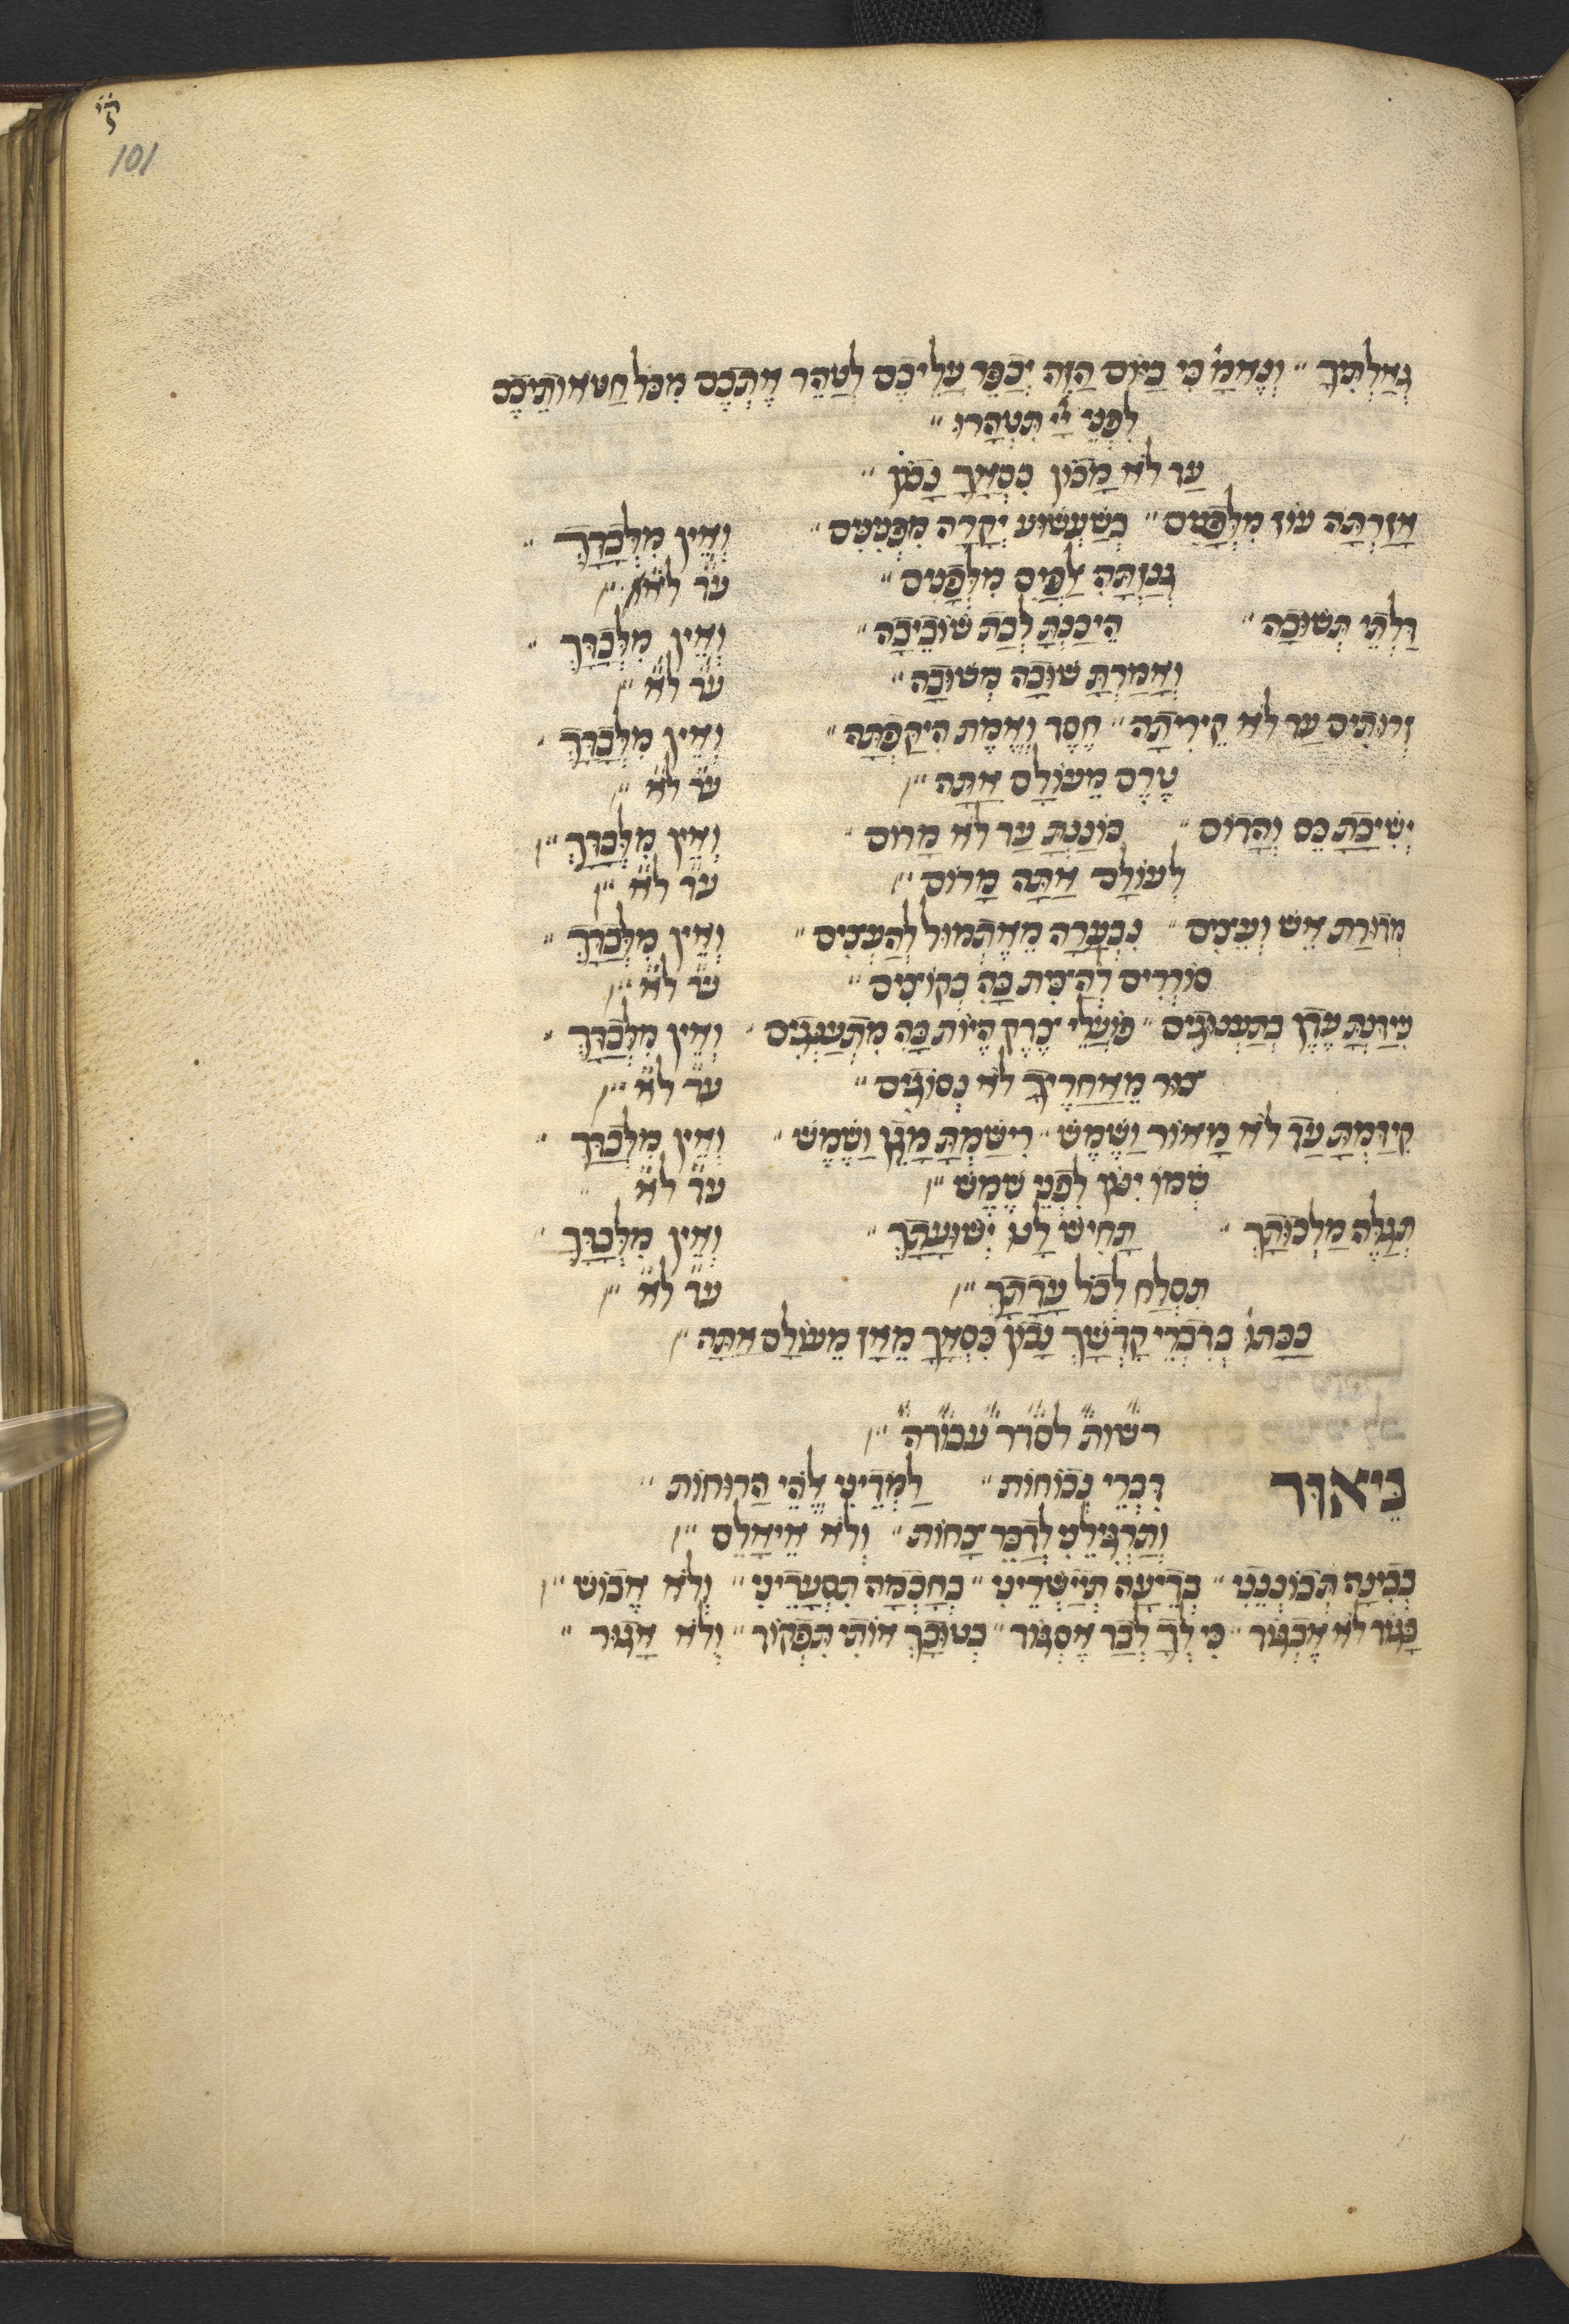 קי
101
גְאַלְתִּיךָ״ וְנֶאֱמַ׳ כִּי בַיּוֹם הַזֶּה יְכַפֵּר עֲלֵיכֶם לְטַהֵר אֶתְכֶם מִכֹּל חַטֹּאותֵיכֶם
לִפְנֵי יְיָ תִּטְהָרוּ״
עַד לֹא מָכוֹן כִּסְאֲךָ נָכוֹן״
אָזַרְתָּה עוֹז מִלְּפָנִים״ כְּשַׁעֲשׁוּעַ יְקָרָה מִפְּנִינִים״ וְאֵין מִלְּבַדָּךְ״
גְּנַזְתָּהּ אַלְפַּיִם מִלְּפָנִים״ עד לא״
דַּלְתֵי תְּשׁוּבָה״ הֵיכַנְתָּ לְבַת שׁוֹבֵיבָה״ וְאֵין מִלְּבַדָּךְ״
וְאָמַרְתָּ שׁוּבָה מְשׁוּבָה״ עד לא״
זְרוּתִים עַד לֹא קֵירִיתָה״ חֶסֶד וֶאֱמֶת הִיקַפְתָּה״ וְאֵין מִלְּבַדָּךְ״
טֶרֶם מֵעוֹלָם אַתָּה״ עד לא״
יְשִׁיבַת כֵּס וַהֲדוֹם״ כּוֹנַנְתָּ עַד לֹא מָרוֹם״ וְאֵין מִלְּבַדָּךְ״
לְעוֹלָם אַתָּה מָרוֹם״ עד לא״
מְדוּרַת אֵשׁ וְעֵצִים״ נִבְעָרָה מֵאֶתְמוּל לְהַעֲצִים״ וְאֵין מִלְּבַדָּךְ״
סוֹרְרִים לְהַצִּית בָּהּ כְּקוֹצִים״ עד לא״
עִידַּנְתָּ עֵדֶן בְּתַעֲנוּגִים״ פּוֹעֲלֵי צֶדֶק הֱיוֹת בָּהּ מִתְעַנְּגִים״ וְאֵין מִלְּבַדָּךְ״
צוּר מֵאַחֲרֶיךָ לֹא נְסוֹגִים״ עד לא״
קִידַּמְתָּ עַד לֹא מָאוֹר וָשֶׁמֶשׁ״ רִישַׁמְתָּ מָגֵן וָשֶׁמֶשׁ״ וְאֵין מִלְּבַדָּךְ״
שְׁמוֹ יִנּוֹן לִפְנֵי שֶׁמֶשׁ״ עד לא״
תְּגַלֶּה מַלְכוּתָךְ״ תָּחִישׁ לָנוּ יְשׁוּעָתָךְ״ וְאֵין מִלְּבַדָּךְ״
תִּסְלַח לְכֹל עֲדָתָךְ״ עד לא״
כַּכָּתוּ׳ בְּדִבְרֵי קָדְשָׁךְ נָכוֹן כִּסְאֲךָ מֵאָז מֵעוֹלָם אַתָּה״
רשות לסדר עבודה״
בְּיֹאדֵּךְ דִּבְרֵי נְכוֹחוֹת״ לַמְּדֵינִי אֱלֹהֵי הַרוּחוֹת״
וְתַרְגִּילֵנִי לְדַבֵּר צָחוֹת״ וְלֹא אֵיאָלֵם״
בְּבִינָה תְּבוֹנְנֵנִי״ בְּדֵיעָה תְּיַישְּׁרֵינִי״ בְּחָכְמָה תִּסְעָדֵינִי״ וְלֹא אֵבוֹשׁ״
בָּגוֹד לֹא אֶבְגּוֹד״ כִּי לְךָ לְבַד אֶסְגּוֹד״ בְּטוּבָךְ אוֹתִי תִּפְקוֹד״ וְלֹא אָגוּר״